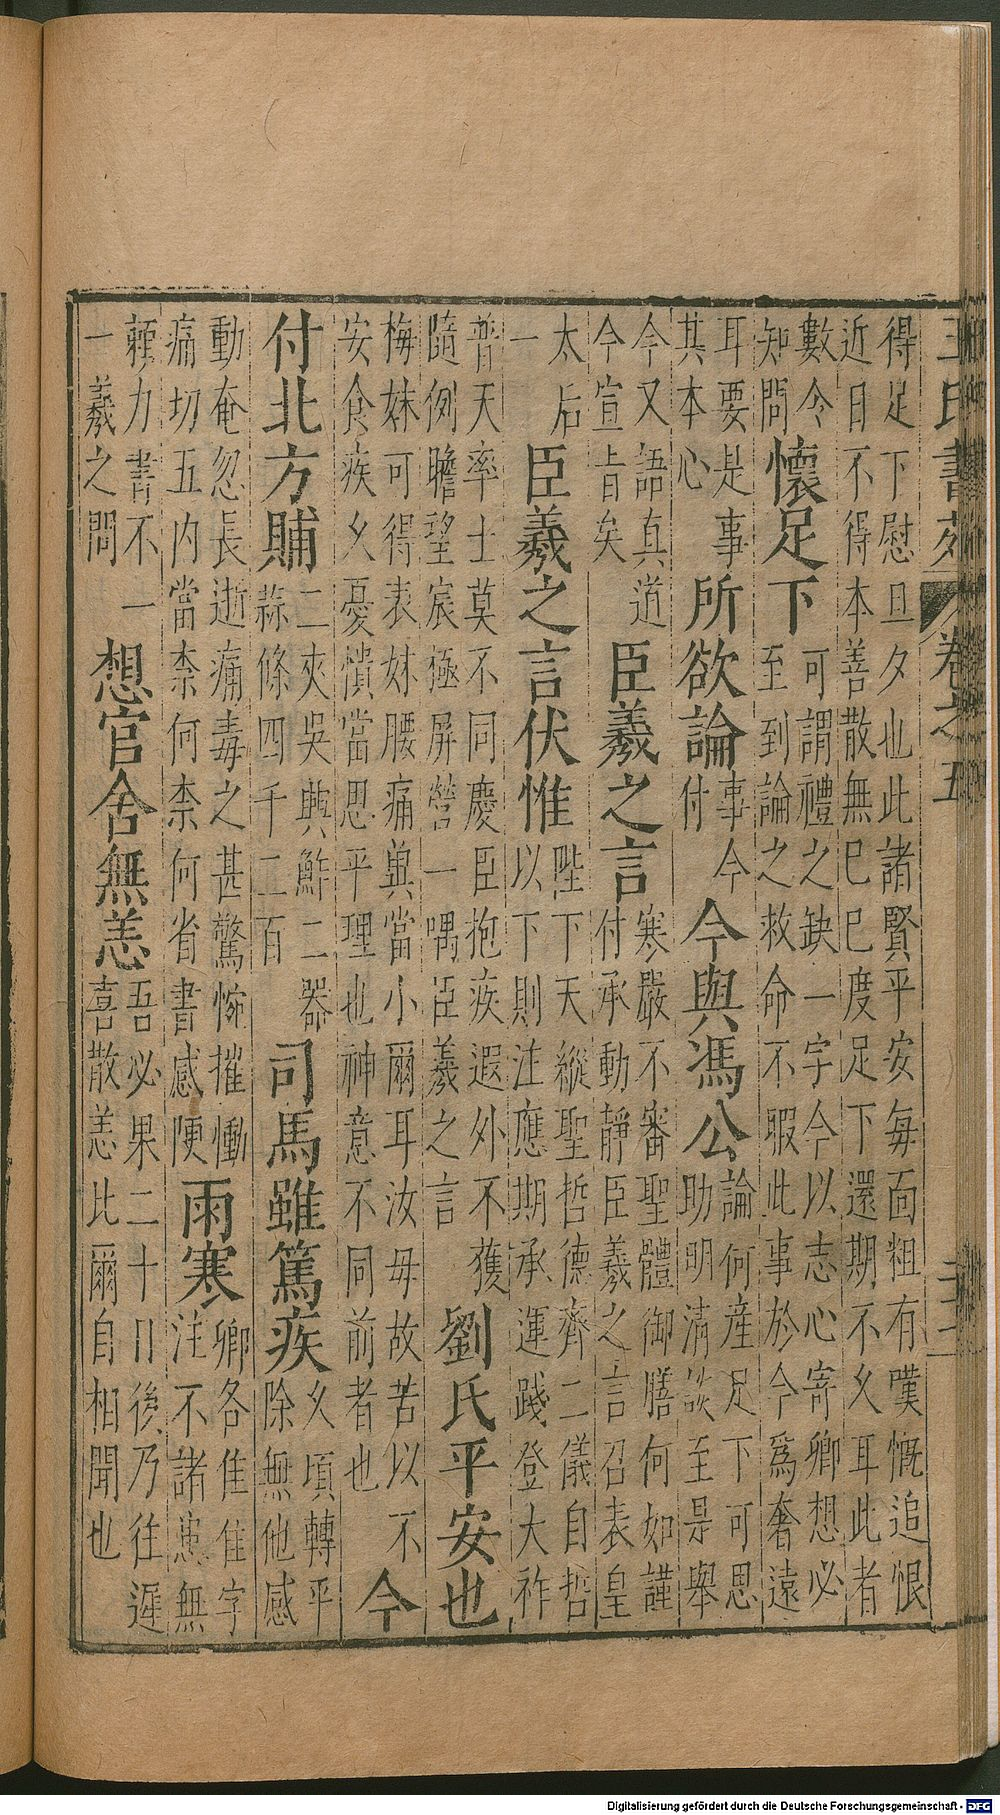 王氏書苑 卷之五
得足下慰旦夕也此諸賢平安每面粗有嘆慨追恨
近日不得本善散無已已度足下還期不久耳此者
數令 可謂禮之缺一字今以志心寄卿想必
知問 懷足下 至到論之救命不暇此事於今為奢遠
耳要是事 事今 論何產足下可思
其本心 所欲論 付 今與馮公 助明清談至是舉
今又語真道 寒嚴不審聖體御膳何如謹
今宣旨矣 臣羲之言 付承動靜臣羲之言召表皇
太后 陛下天縱聖哲德齊二儀自哲
一 臣羲之言伏惟 以下則注應期承運踐登大祚
普天率土莫不同慶臣抱疾遐外不獲
隨例瞻望宸極屏營一隅臣羲之言 劉氏平安也
梅妹可得表妹腰痛冀當小爾耳汝毋故苦以不
安食疾久憂憒當思平理也神意不同前者也 今
付北方脯 二夾吳興鮓二器 久頃轉平
蒜條四千二百 司馬雖篤疾 除無他感
動奄忽長逝痛毒之甚驚惋摧慟 卿各佳佳字
痛切五內當柰何柰何省書感哽 雨寒 注不諸患無
賴力書不一 吾必果二十日後乃往遲
一羲之問 想官舍無恙 喜散恙比爾自相聞也
Digitalisierung gefördert durch die Deutsche Forschungsgemeinschaft - DFG